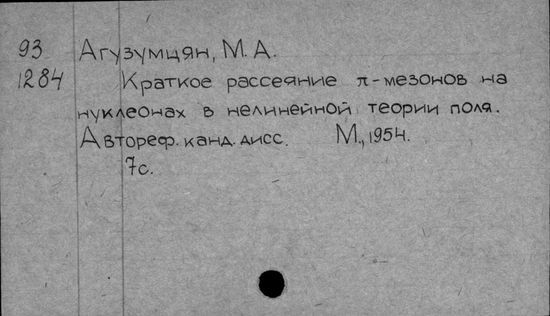 93 Агузумцян, М. А.
1284 Краткое рассеяние π-мезонов на
нуклеонах в нелинейной теории поля.
Автореф. канд. дисс. М., 1954.
7с.